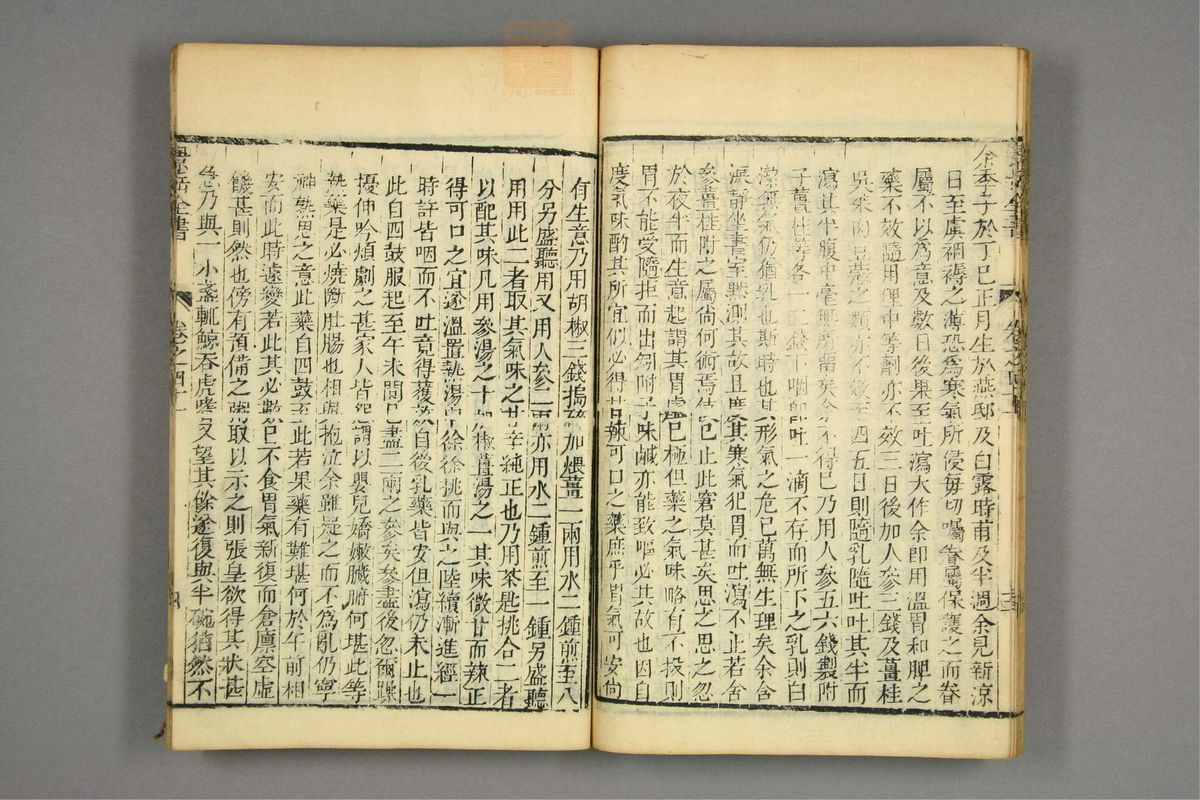 余季子於丁巳正月生於燕邸及白露時甫及半週余見新涼
日至虞裀褥之薄恐爲寒氣所侵每切囑眷屬保護之而眷
屬不以爲意及數日後果至吐瀉大作余即用溫胃和脾之
藥不效隨用理中等劑亦不效三日後加人參三錢及薑桂
吳茱肉豆蔻之類亦不效至四五日則隨乳隨吐吐其半而
瀉其半腹中毫無所留矣余不得已乃用人參五六錢製附
子薑桂等各一二錢下咽即吐一滴不存而所下之乳則白
潔無氣仍猶乳也斯時也其形氣之危已萬無生理矣余含
淚靜坐書室默測其故且度其寒氣犯胃而吐瀉不止若舍
參薑桂附之屬尚何術焉伎已止此窘莫甚矣思之思之忽
於夜半而生意起謂其胃虛已極但藥之氣味略有不投則
胃不能受隨拒而出矧附子味鹹亦能致嘔必其故也因自
度氣味酌其所宜似必得甘辣可口之藥庶乎胃氣可安尚
有生意乃用胡椒三錢搗碎加煨薑一兩用水二鍾煎至八
分另盛聽用又用人參二兩亦用水二鍾煎至一鍾另盛聽
用用此二者取其氣味之甘辛純正也乃用茶匙挑合二者
以配其味凡用參湯之十加椒薑湯之一其味微甘而辣正
得可口之宜遂溫置熱湯中徐徐挑而與之陸續漸進經一
時許皆咽而不吐竟得獲效自後乳藥皆安但瀉仍未止也
此自四鼓服起至午未間已盡二兩之參矣參盡後忽爾躁
擾呻吟煩劇之甚家人皆怨謂以嬰兒嬌嫩臟腑何堪此等
熱藥是必燒斷肚腸也相與抱泣余雖疑之而不爲亂仍寧
神熟思之意此藥自四鼓至此若果藥有難堪何於午前相
安而此時遽變若此其必數日不食胃氣新復而倉廩空虛
饑甚則然也傍有預備之粥取以示之則張皇欲得其狀甚
急乃與一小盞輒鯨吞虎嗜又望其餘遂復與半碗猶然不
景岳全書
卷之四十一
zysj.com.cn